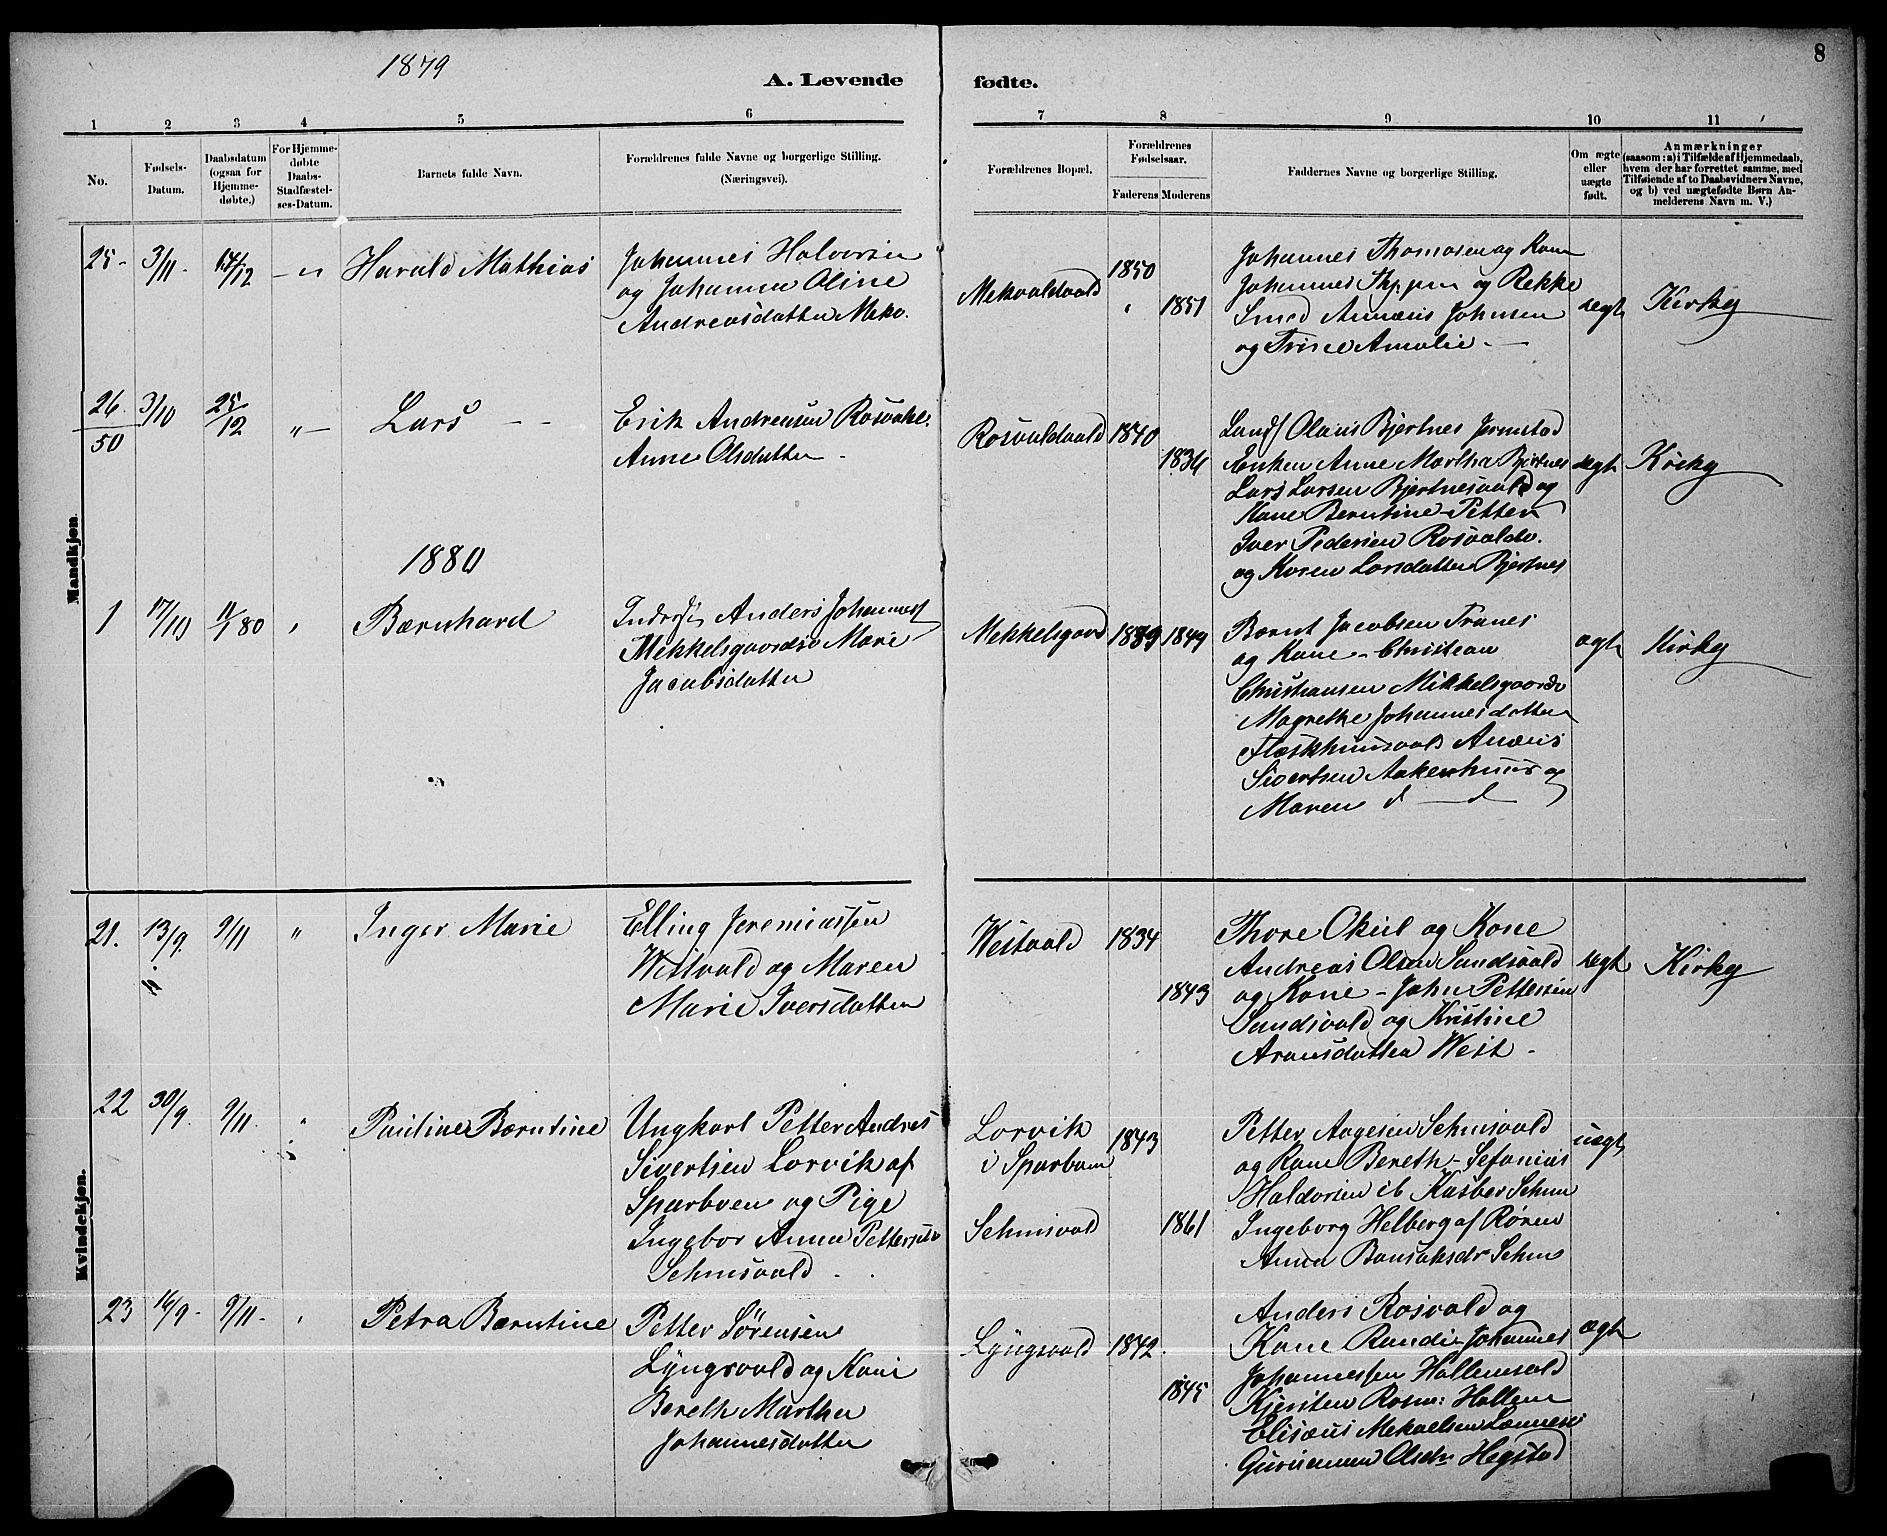 8
1879
A. Levende fødte.
1 2 3 4 5 6 7 8 9 10 11
No.
Fødsels-
Datum.
Daabsdatum
(ogsaa for
Hjemme-
døbte.)
For Hjemme-
døbte
Daabs-
Stadfæstel-
ses-Datum.
Barnets fulde Navn.
Forældrenes fulde Navne og borgerlige Stilling.
(Næringsvei).
Forældrenes Bopæl.
Forældrenes
Fødselsaar.
Faderens Moderens
Faddernes Navne og borgerlige Stilling.
Om ægte
eller
uægte
født.
Anmærkninger
(saasom: a) i Tilfælde af Hjemmedaab,
hvem der har forrettet samme, med
Tilføiende af to Daabsvidners Navne,
og b) ved uægtefødte Børn An-
melderens Navn m. V.)
Mandkjøn
25- 3/11- 14/12 Harald Mathias
Johannes Halvorsen
og Johanna Oline
Andreasdatter Meko.
Mekvaldvald 1850
1851
Johannes Thomasen og Kone
Johannes og Rekke
Smed Johnsen
og Trine Amalie -
ægt Kirky
26. 3/10 25/12 „ - Lars - -
50
Erik Andreasen
Anne Olsdatter -
Rosvaldvald 1840
1836
Olaus Bjertnes
Enken Anne Martha Bjertnes
Lars Larsen Bjertnesvald og
Kone Berntine - Petter
Iver Pedersen Rosvaldv.
og Karen Larsdatter Bjertnes
ægt Kirky
1880
1 17/10 11/1 80 Bærnhard
Anders Johannes
Mikkelsgaardsv Marie
Jacobsdatter
Mekkelsgaard 1849
Bærnt Jacobsen Tranes
og Kone - Christian
Christiansen Mikkelsgaardsv
Magrethe Johannesdatter
Anders
Sivertsen Aakerhuus og
Maren d - d
ægt Kirky
Kvindekjøn.
21. 13/9. 9/11 „ Inger Marie
Elling Jeremiassen
Westvald og Maren
Marie Iversdatter
Westvald 1834
1843
Thore Okul og Kone
Andreas Olsen Sandsvald
og Kone - John Pettersen
Sandsvald og Kristine
Aronsdatter West -
ægt Kirky
22 30/9. 9/11. Pauline Bærntine
Ungkarl Petter Andreas
Sivertsen Lorvik af
Sparboen og Pige
Ingebor Anna Petters
Schmsvald -
Lorvik 1843
i Sparboen
Schmsvald 1861
Petter Aagesen Schmsvald
og Kone Bereth - Sefanias
Haldorsen ib Kasber Schm
Ingeborg Helberg af Røren
Anna
uægt
23 16/9- 9/11- Petra Bærntine
Petter Sørensen
Lyngsvald og Kone
Bereth Martha
Johannesdatter
Lyngsvald 1842.
1845
Anders Rosvald og
Kone Randi - Johannes
Johannessen Hallemsvald
Kjersten Hallem
Elisæus Mekaelsen
Olsdr Hegstad
ægt